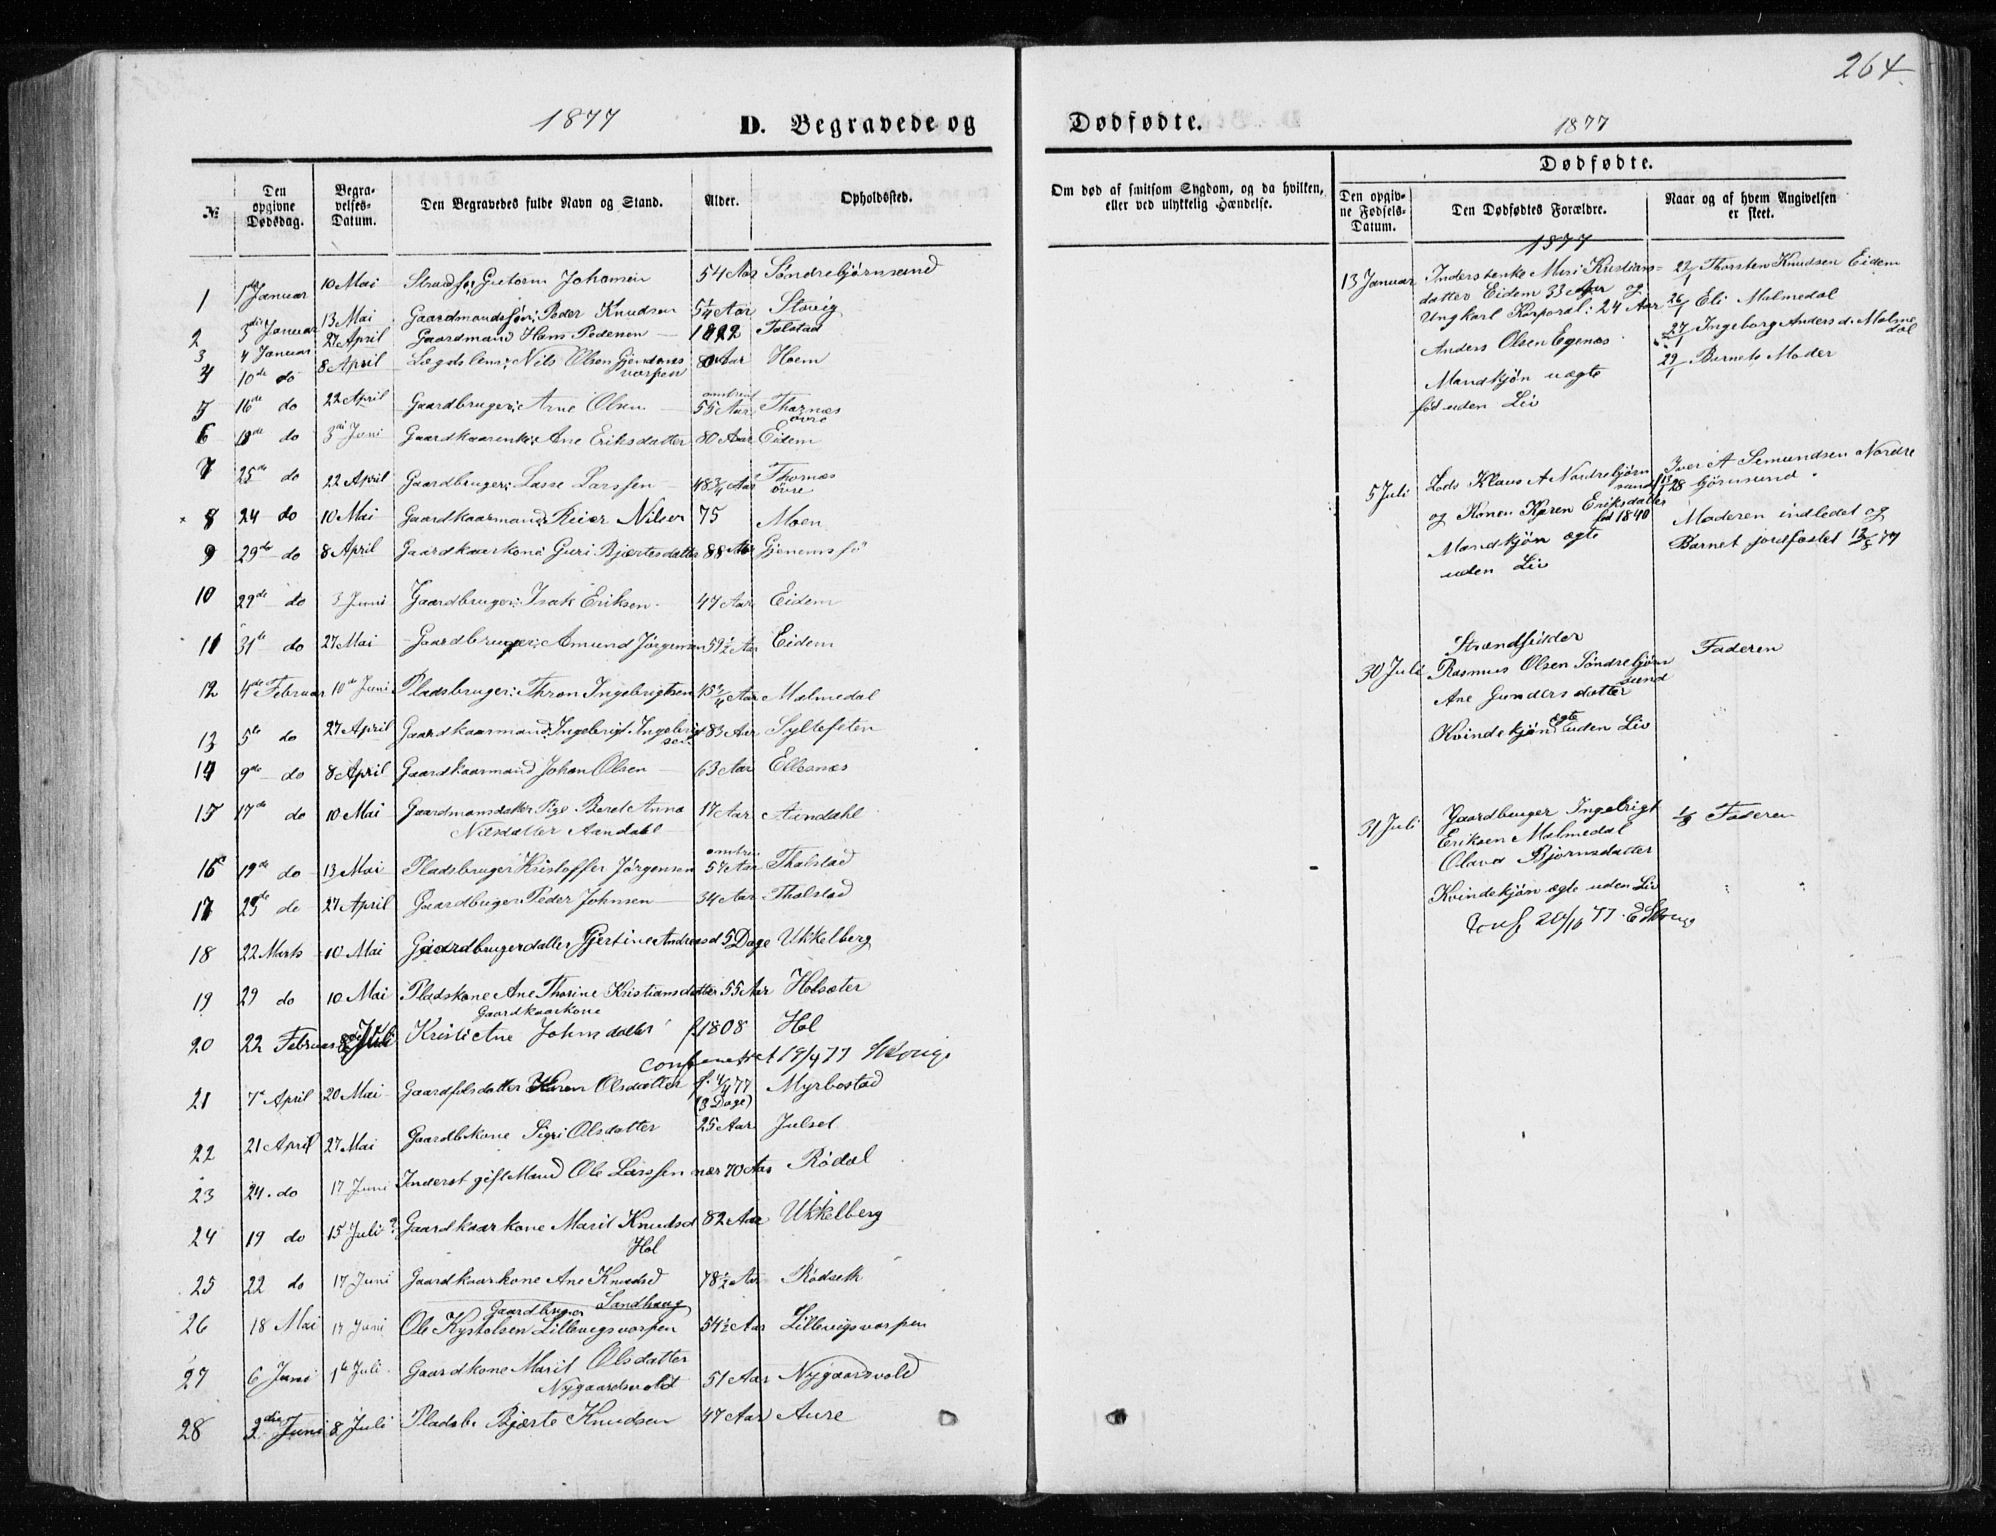 264
1877 D. Begravede og Dødfødte. 1877
№
Den opgivne Dødsdag.
Begravelses-Datum.
Den Begravedes fulde Navn og Stand.
Alder.
Opholdssted.
Om død af smitsom Sygdom, og da hvilken, eller ved ulykkelig Hændelse.
Dødfødte.
Den opgivne Fødsels-Datum.
Den Dødfødtes Forældre.
Naar og af hvem Angivelsen er skeet.
1 1ste Januar 10 Mai Guttorm Johansen 54 Aar Søndrebjørnsund
2 3die Januar 13 Mai Gaardmandssøn: Peder Knudsen 5 1/4 Aar Stavig
3 4 Januar 27 April Gaardmand Hans Pedersen 1822 Tolstad
4 10de do 8 April Lægdslem: Nils Olsen Gjendemsvarpen 80 Aar Hoem
5 16de do 22 April Gaardbruger: Arne Olsen omtrent 55 Aar Thornæs øvre
6 18de do 3di Juni Gaardkaarenke: Ane Eriksdatter 80 Aar Eidem
7 25de do 22 April Gaardbruger: Lasse Larssen 48 3/4 Aar Thornæs øvre
8 24 do 10 Mai Gaardkaarmand: Reier Nilsen 75 Moen
9 29de do 8 April Gaardkaarkone: Guri Bjærtesdatter 88 Aar Gjenemsjø
10 29de do 3 Juni Gaardbruger: Isak Eriksen 47 Aar Eidem
11 31te do 27 Mai Gaardbruger: Amund Jørgensen 59 1/2 Aar Eidem
12 4de Februar 10de Juni Pladsbruger: Thron Ingebrigtsen 45 Aar Malmedal
13 5te do 27 April Gaardkaarmand: Ingebrigt Ingebrigtsen 83 Aar Sylteseten
14 9de do 8 April Gaardkaarmand Johan Olsen 63 Aar Ellesnæs
15 17de do 10 Mai Gaardmandsdatter Pige Beret Anna Nilsdatter Aandahl 17 Aar Aandahl
16 19de do 13 Mai Pladsbruger Kristoffer Jørgensen omtrent 57 Aar Thalstad
17 23de do 27 April Gaardbruger: Peder Johnsen 34 Aar Thalstad
18 22 Marts 10 Mai Gaardbrugerdatter Gjertine Andreasd 5 Dage Ukkelberg
19 29 do 10 Mai Pladskone Ane Thorine Kristiansdatter 55 Aar Holsæter
20 22 Februar 8 Juli Gaardkaarkone Kristi Ane Johnsdatter f. 1808 Hol
19/4 77
21 7de April 20 Mai Karen Olsdatter f. 4/4 77 (3 Dage) Myrbostad
22 21 April 27 Mai Gaardbkone Sigri Olsdatter 25 Aar Julset
23 24. do 17 Juni Inderst gift Mand Ole Larssen nær 70 Aar Rødal
24 19 do 15 Juli ? Gaardkaarkone Marit Knudsd Hol 82 Aar Ukkelberg
25 22 do 17 Juni Gaardkaarkone Ane Knudsd Sandhaug 78 1/2 Aar Rødseth
26 18 Mai 17 Juni Gaardbruger Ole Kystolsen Lillevigsvorpen 54 1/2 Aar Lillevigsvorpen
27 6 Juni 1ste Juli Gaardkone Marit Olsdatter Nygaardsvold 51 Aar Nygaardsvold
28 2den Juni 8 Juli Pladsb. Bjærte Knudsen 47 Aar Aure
1877
13 Januar Inderstenke Mari Kristians=
datter Eidem 33 Aar og
Ungkarl Korporal: 24 Aar
Anders Olsen Egenæs
Mandkjøn uægte
født uden Liv
22/1 Thorsten Knudsen Eidem
26/1 Eli Malmedal
27/1 Ingeborg Anders d. Malmedal
29/1 Barnets Moder
5 Juli Lods Klaus A Nordrebjørnsund
og Konen Karen Eriksdatter
født 1840
Mandkjøn ægte
uden Liv
Iver A Semundsen Nordre
bjørnsund.
Moderen indledet og
Barnet jordfæstet 12/8 77
30 Juli Strandsidder
Rasmus Olsen Søndrebjørnsund
Ane Gundersdatter
Kvindekjøn ægte uden Liv
Faderen
31 Juli Gaardbruger Ingebrigt
Eriksen Malmedal
Olava Bjørnsdatter
Kvindekjøn ægte uden Liv
1/8 Faderen
20/10 77